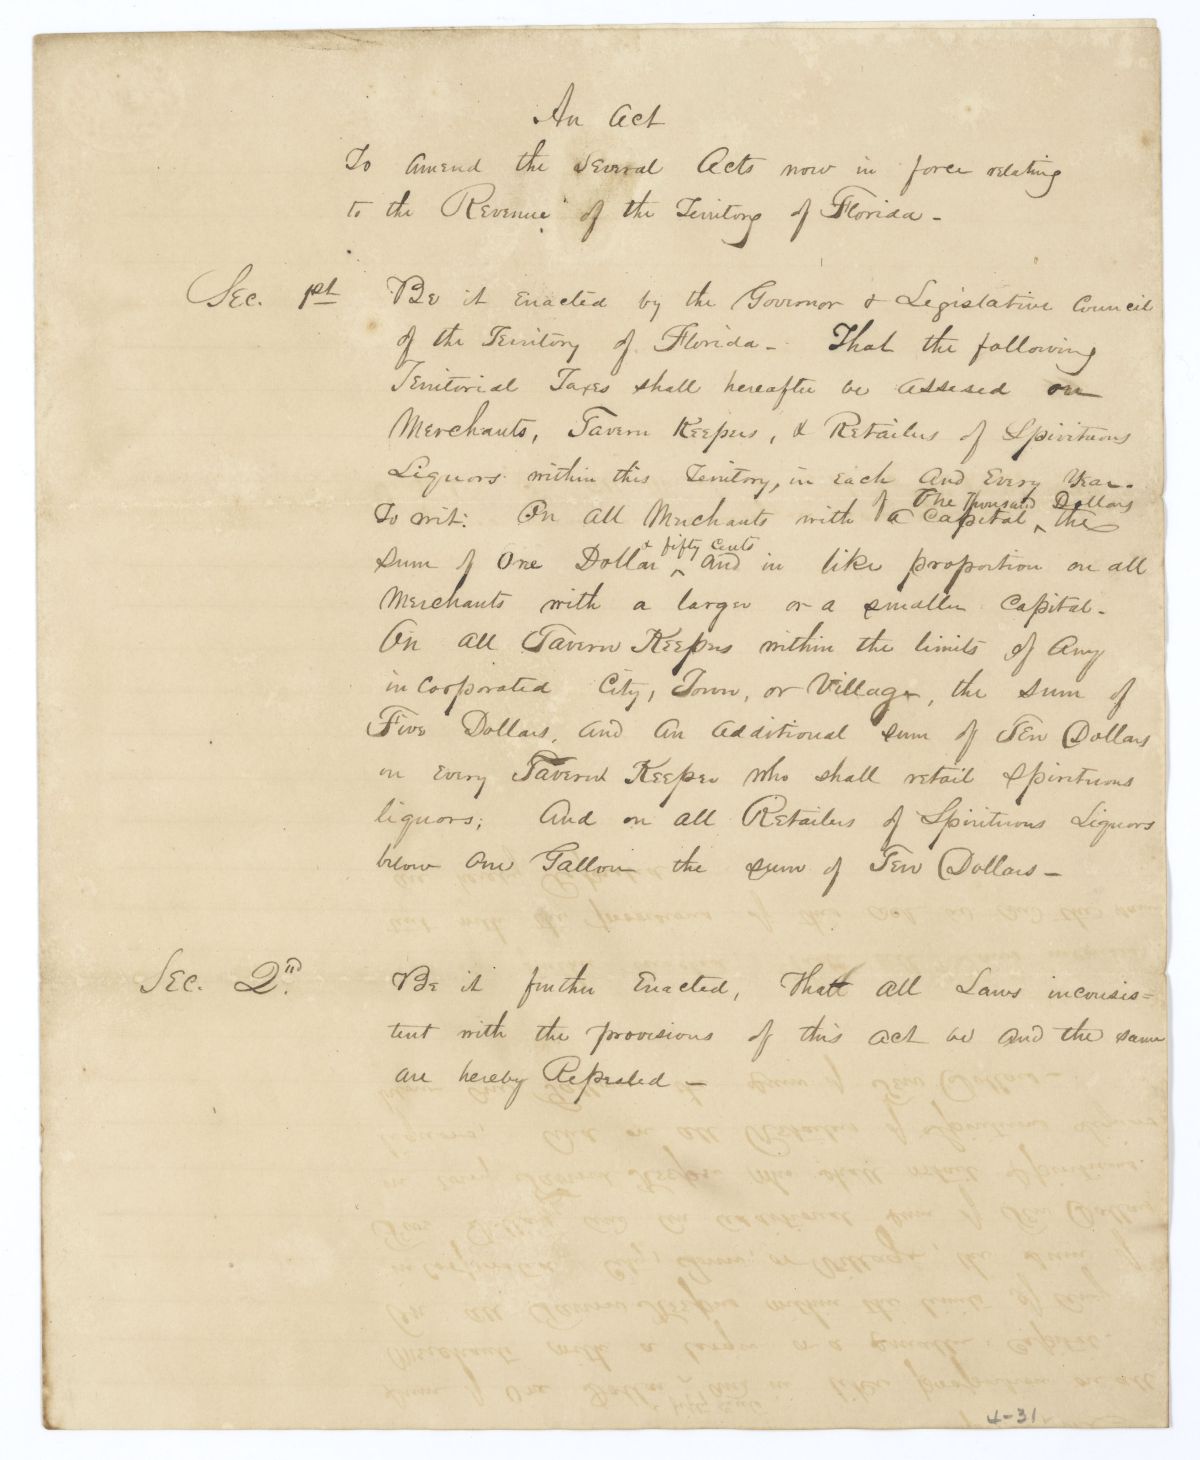 An Act
To amend the several Acts now in force relating
to the Revenue of the Territory of Florida -
Sec. 1st Be it Enacted by the Governor & Legislative Council
of the Territory of Florida - That the following
Territorial Taxes shall hereafter be assesed on
Merchants, Tavern Keepers, & Retailers of Spirituous
Liquors within this Territory, in each and Every Year.
of One Thousand Dollars
To wit: On all Merchants with a Capital ^ the
& fifty Cents
sum of One Dollar ^ and in like proportion on all
Merchants with a larger or a smaller Capital.
On all Tavern Keepers within the limits of Any
incorporated City, Town, or Village, the sum of
Five Dollars, and an additional sum of Ten Dollars
on every Tavern Keeper who shall retail spirituous
liquors; And on all Retailers of Spirituous Liquors
below One Gallon the sum of Ten Dollars -
Sec. 2nd. Be it further Enacted, That all Laws inconsis=
tent with the provisions of this act be and the same
are hereby Repealed -
4-31